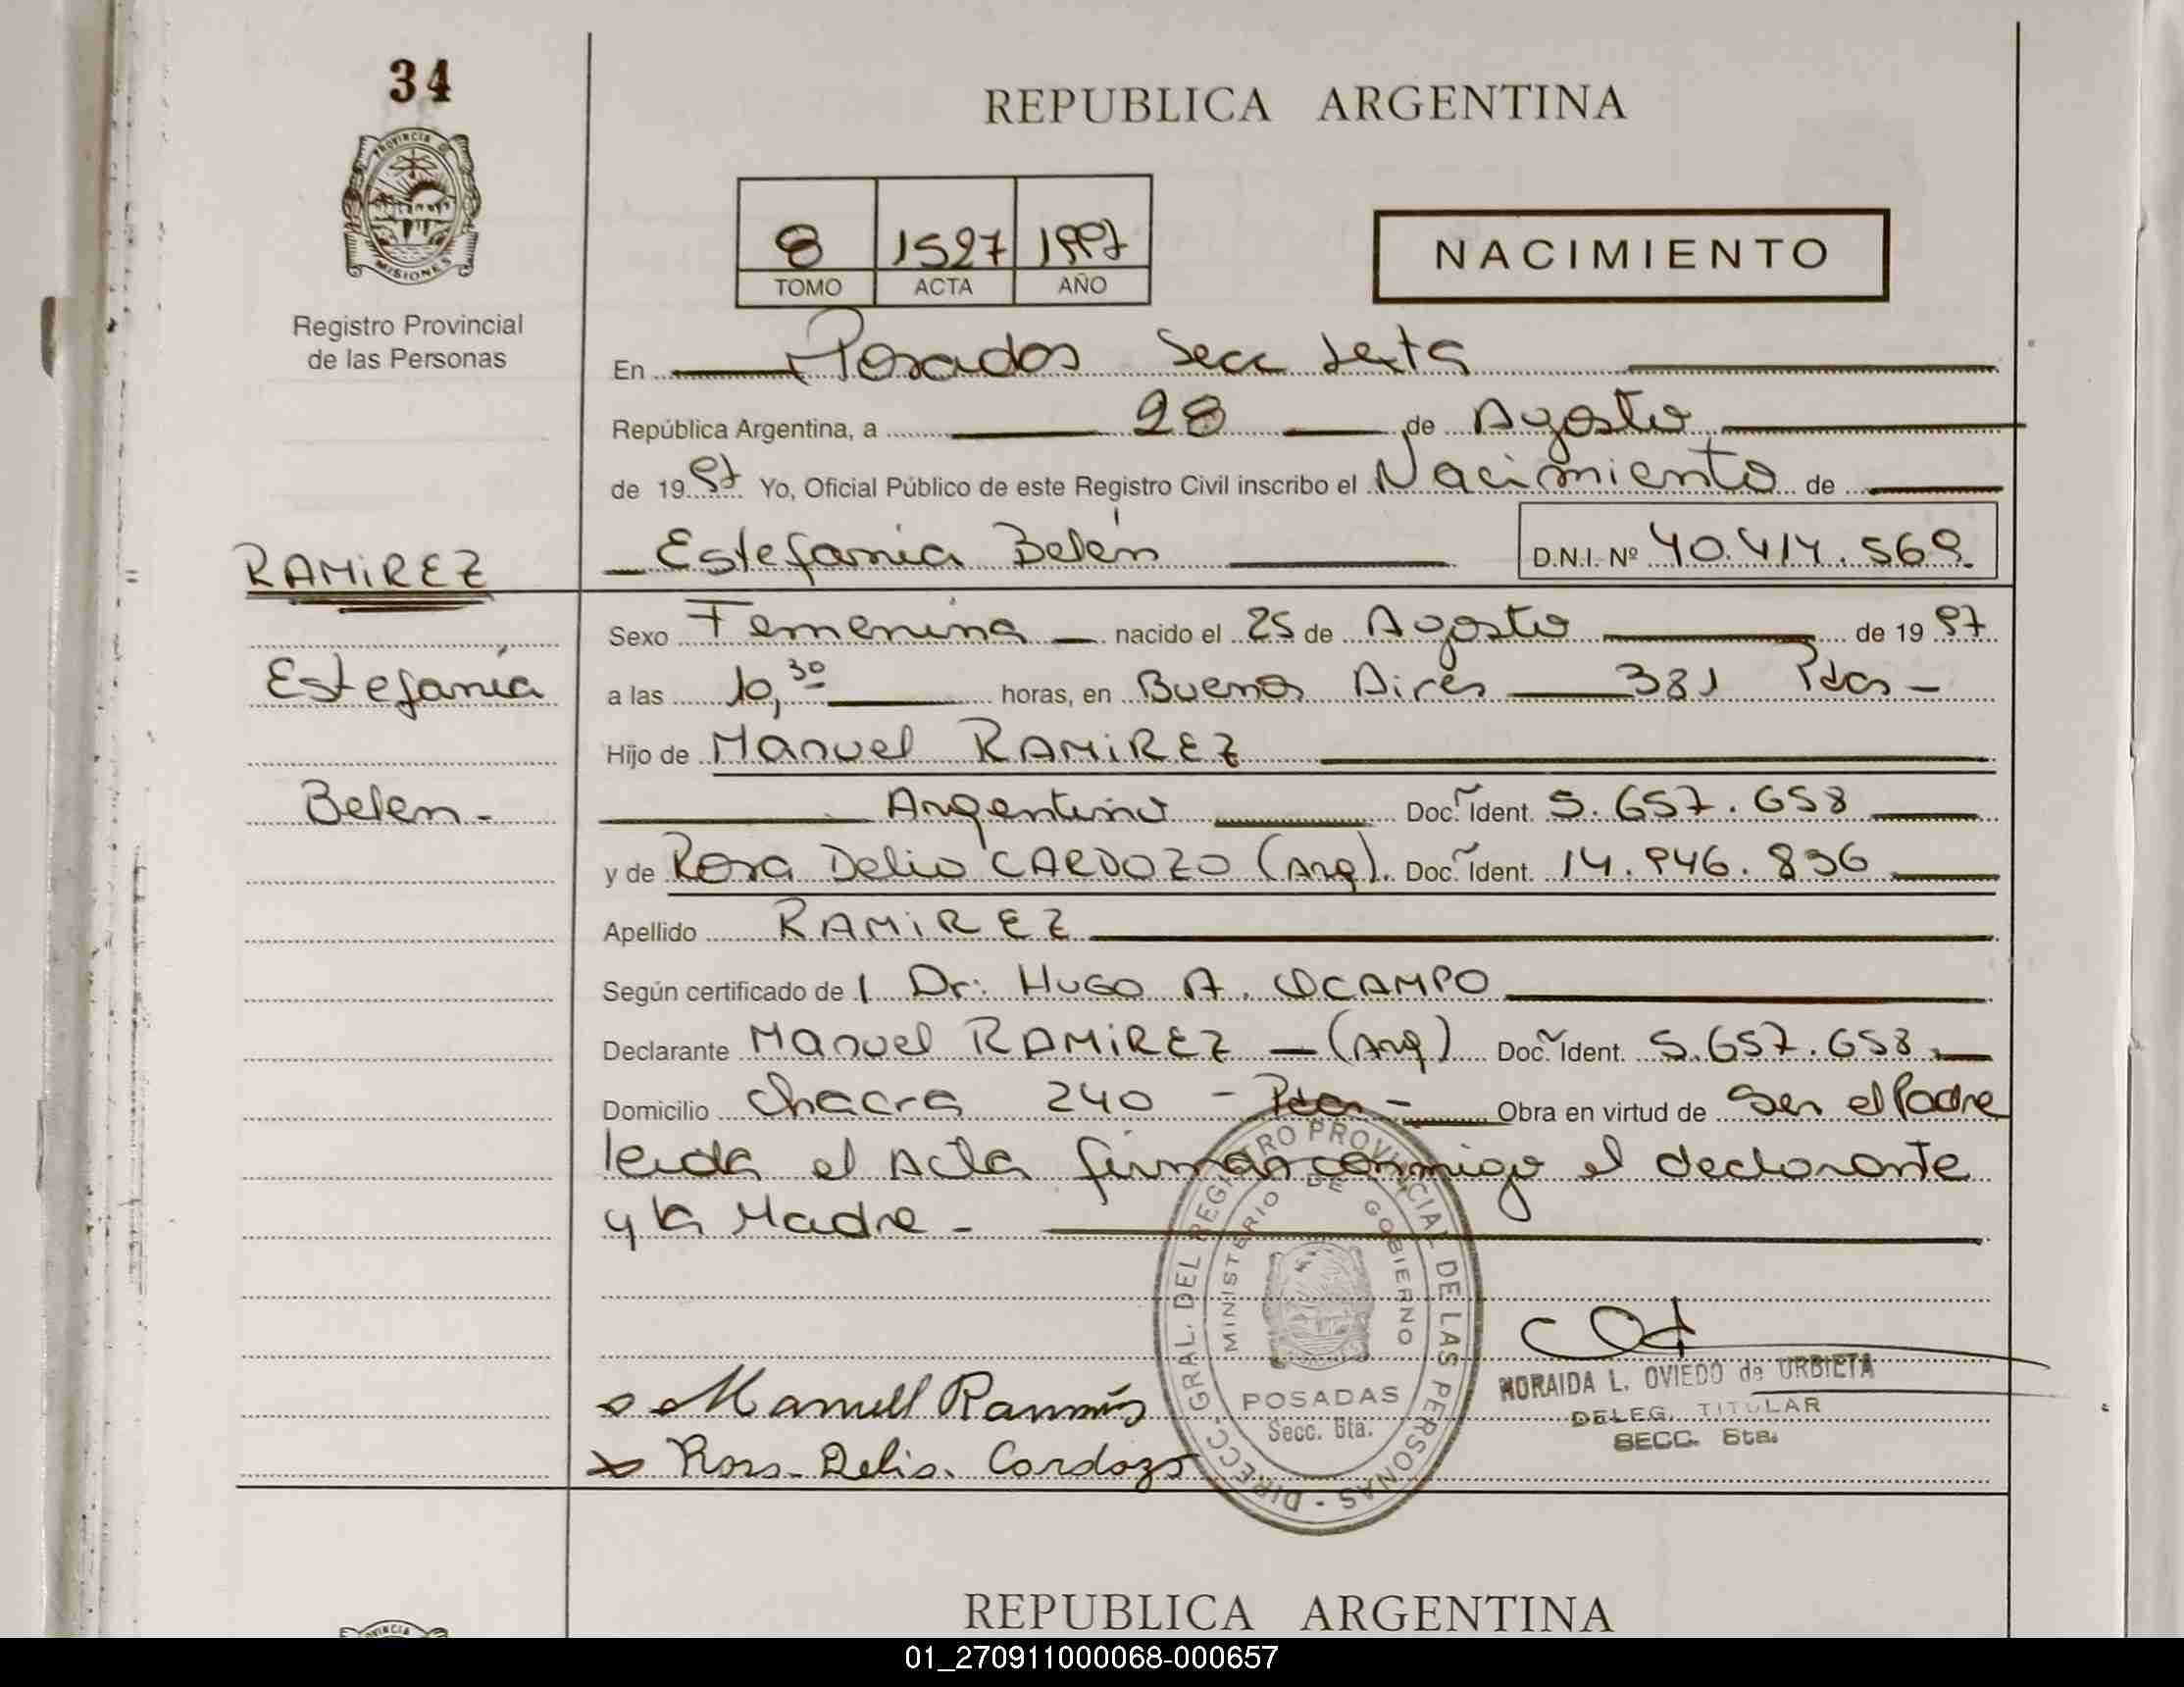 34
REPUBLICA ARGENTINA
PROVINCIA DE
MISIONES
Registro Provincial
de las Personas
8 1527 1997
TOMO ACTA AÑO
NACIMIENTO
En Posadas Secc Sexta
República Argentina, a 28 de Agosto
de 1997 Yo, Oficial Público de este Registro Civil inscribo el Nacimiento de
RAMIREZ
Estefanía Belén D.N.I. Nº 40.414.569
Sexo Femenina nacido el 25 de Agosto de 1997
Estefanía
a las 10,30 horas, en Buenos Aires 381 Pdas -
Hijo de Manuel RAMIREZ
Belén -
Argentino Doc. Ident. 5.657.658
y de Rosa Delia CARDOZO (Arg). Doc. Ident. 14.946.896
Apellido RAMIREZ
Según certificado de l Dr: HUGO A. OCAMPO
Declarante Manuel RAMIREZ - (Arg) Doc. Ident. 5.657.658.
Domicilio Chacra 240 - Pdas - Obra en virtud de Ser el Padre
leida el Acta firman conmigo el declarante
y la Madre -
DIRECC. GRAL. DEL REGISTRO PROVINCIAL DE LAS PERSONAS -
MINISTERIO DE GOBIERNO
POSADAS
Secc. 6ta.
NORAIDA L. OVIEDO de URBIETA
DELEG. TITULAR
SECC. 6ta.
Manuell Ramirés
Rosa Delia Cardozo
REPUBLICA ARGENTINA
01_270911000068-000657